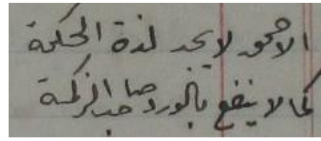 الاحمق لا يجد لذة الحكمة
كما لا ينتفع بالورد صاحب الزكمة